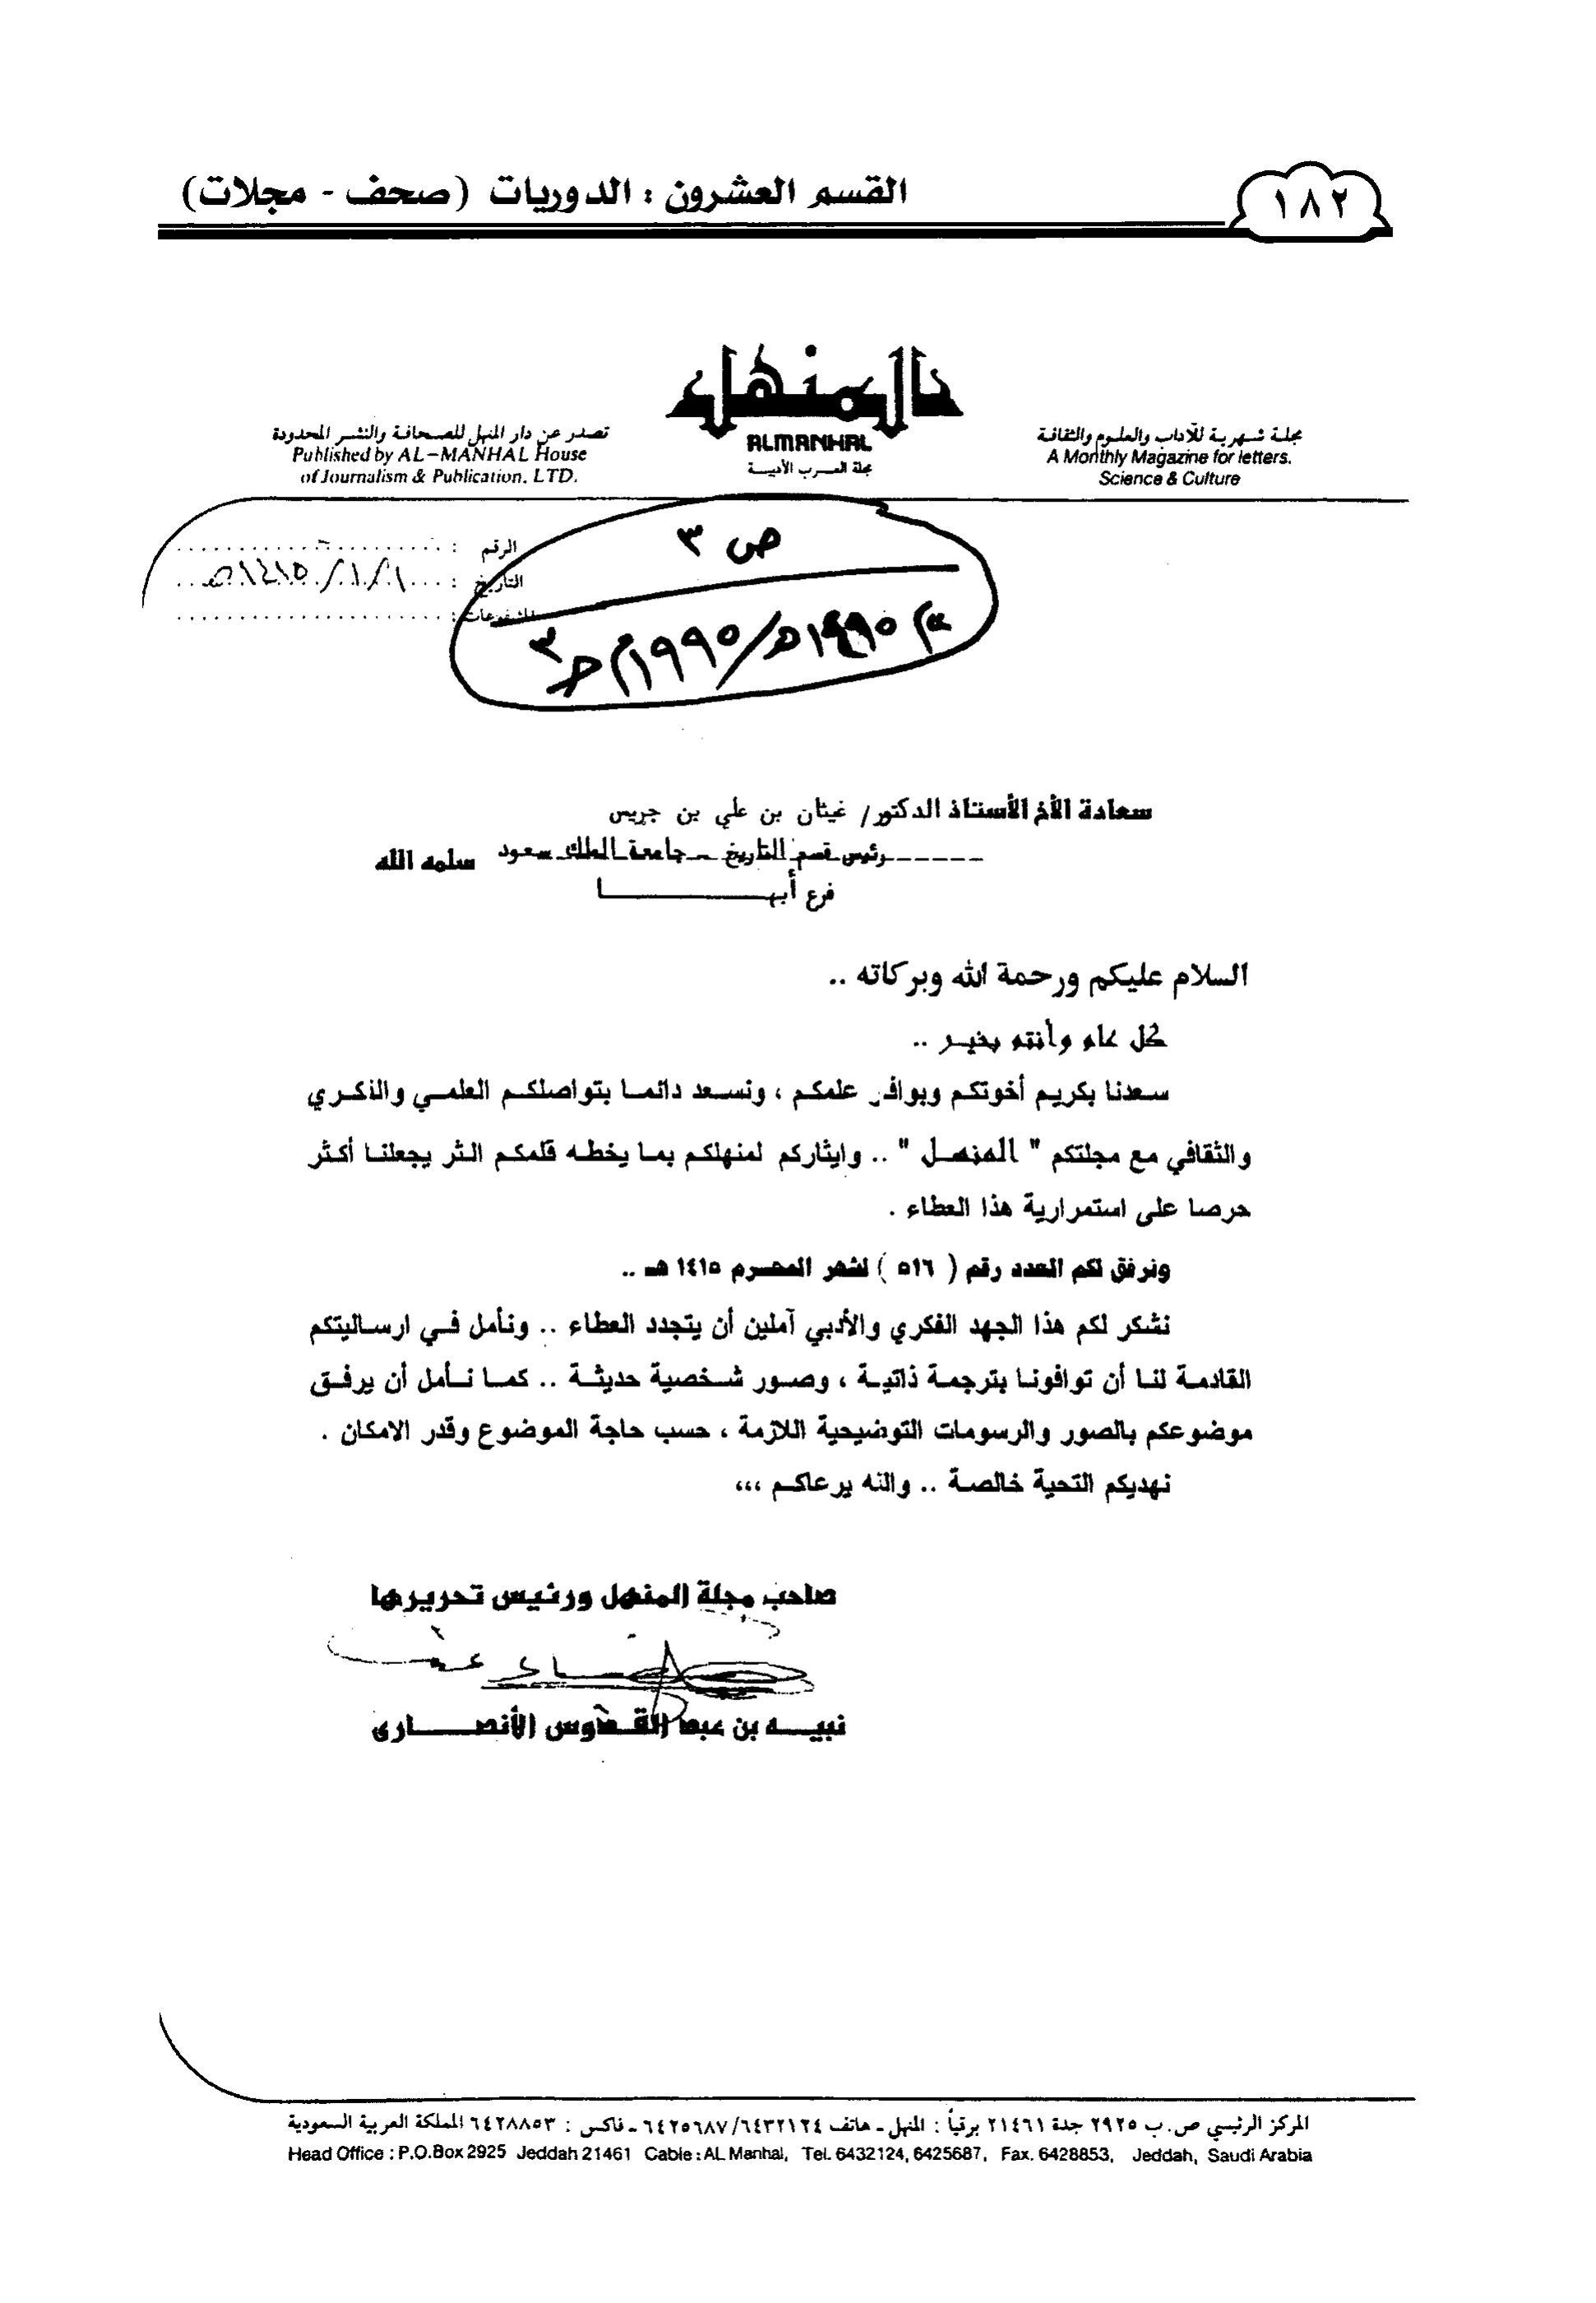 القسم العشرون : الدوريات (صحف - مجلات)
١٨٢
المنهل
ALMANHAL
مجلة العرب الأدبية
مجلة شهرية للآداب والعلوم والثقافة
A Monthly Magazine for letters.
Science & Culture
تصدر عن دار المنهل للصحافة والنشر المحدودة
Published by AL-MANHAL House
of Journalism & Publication. LTD.
الرقم :
التاريخ : ١/١/١٤١٥هـ
المشفوعات :
ص ٣
١٩٩٥م
سعادة الأخ الأستاذ الدكتور/ غيثان بن علي بن جريس
رئيس قسم التاريخ - جامعة الملك سعود سلمه الله
فرع أبها
السلام عليكم ورحمة الله وبركاته ..
كل عام وأنتم بخير ..
سعدنا بكريم أخوتكم وبوافر علمكم ، ونسعد دائما بتواصلكم العلمي والذكري
والثقافي مع مجلتكم " المنهل " .. وايثاركم لمنهلكم بما يخطه قلمكم الثر يجعلنا أكثر
حرصا على استمرارية هذا العطاء .
ونرفق لكم العدد رقم ( ٥١٦ ) لشهر المحرم ١٤١٥ هـ ..
نشكر لكم هذا الجهد الفكري والأدبي آملين أن يتجدد العطاء .. ونأمل في ارساليتكم
القادمة لنا أن توافونا بترجمة ذاتية ، وصور شخصية حديثة .. كما نأمل أن يرفق
موضوعكم بالصور والرسومات التوضيحية اللازمة ، حسب حاجة الموضوع وقدر الامكان .
نهديكم التحية خالصة .. والله يرعاكم ،،،
صاحب مجلة المنهل ورئيس تحريرها
نبيه بن عبد القدوس الأنصاري
المركز الرئيسي ص. ب ٢٩٢٥ جدة ٢١٤٦١ برقياً : المنهل - هاتف ٦٤٣٢١٢٤/٦٤٢٥٦٨٧ - فاكس : ٦٤٢٨٨٥٣ المملكة العربية السعودية
Head Office : P.O.Box 2925 Jeddah 21461 Cable : AL Manhal, Tel. 6432124, 6425687, Fax. 6428853, Jeddah, Saudi Arabia